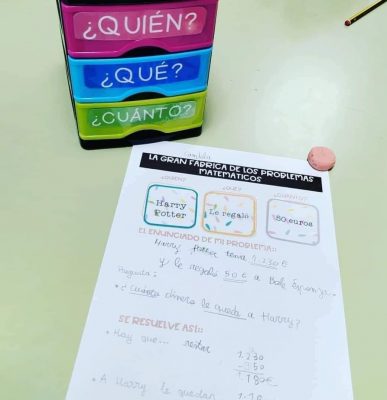 ¿QUIÉN?
¿QUÉ?
¿CUÁNTO?
LA GRAN FÁBRICA DE LOS PROBLEMAS
MATEMÁTICOS
¿QUIÉN?
¿QUÉ?
¿CUÁNTO?
Harry
Potter
Le regaló
50 euros
EL ENUNCIADO DE MI PROBLEMA::
Harry Potter tenía 1.230€
y le regaló 50€ a Bob Esponja.
Pregunta:
¿Cuánto dinero le queda a Harry?
SE RESUELVE ASÍ::
• Hay que... restar
1.230
1180€
• A Harry le quedan